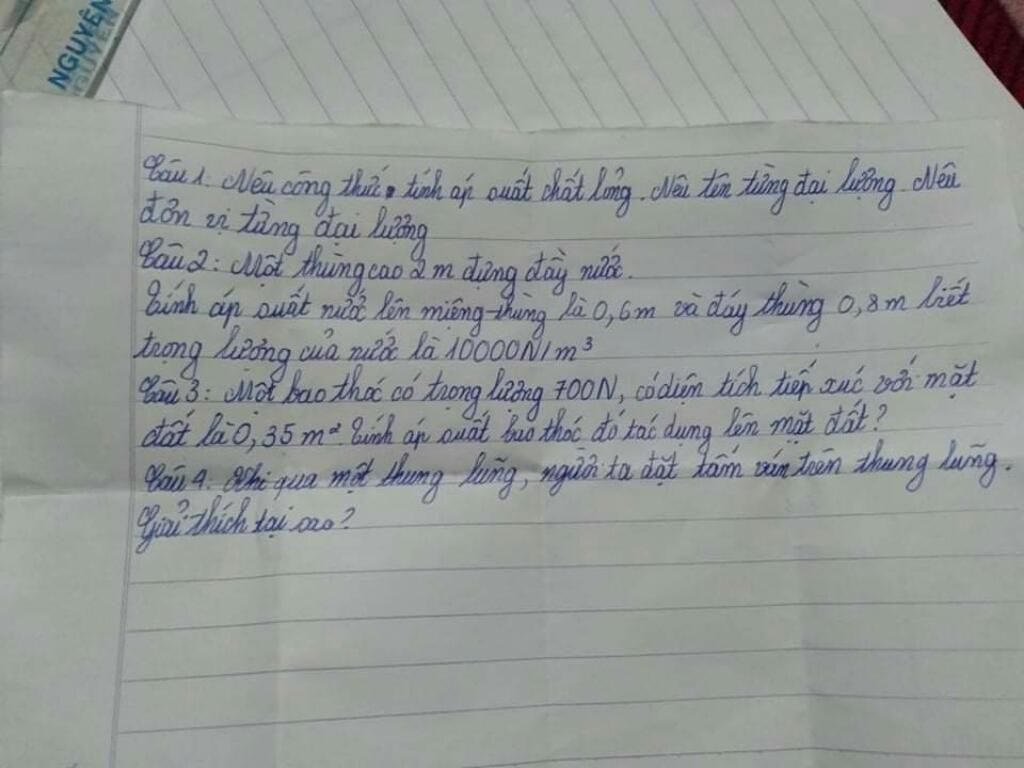 NGUYÊN
NGUYÊN
Câu 1: Nêu công thức tính áp suất chất lỏng. Nêu tên từng đại lượng. Nêu
đơn vị từng đại lượng
Câu 2: Một thùng cao 2m đựng đầy nước.
Tính áp suất nước lên miệng thùng là 0,6m và đáy thùng 0,8m biết
trọng lượng của nước là 10000N/m³
Câu 3: Một bao thóc có trọng lượng 700N, có diện tích tiếp xúc với mặt
đất là 0,35m². Tính áp suất bao thóc đó tác dụng lên mặt đất?
Câu 4: Khi qua một thung lũng, người ta đặt tấm ván trên thung lũng.
Giải thích tại sao?